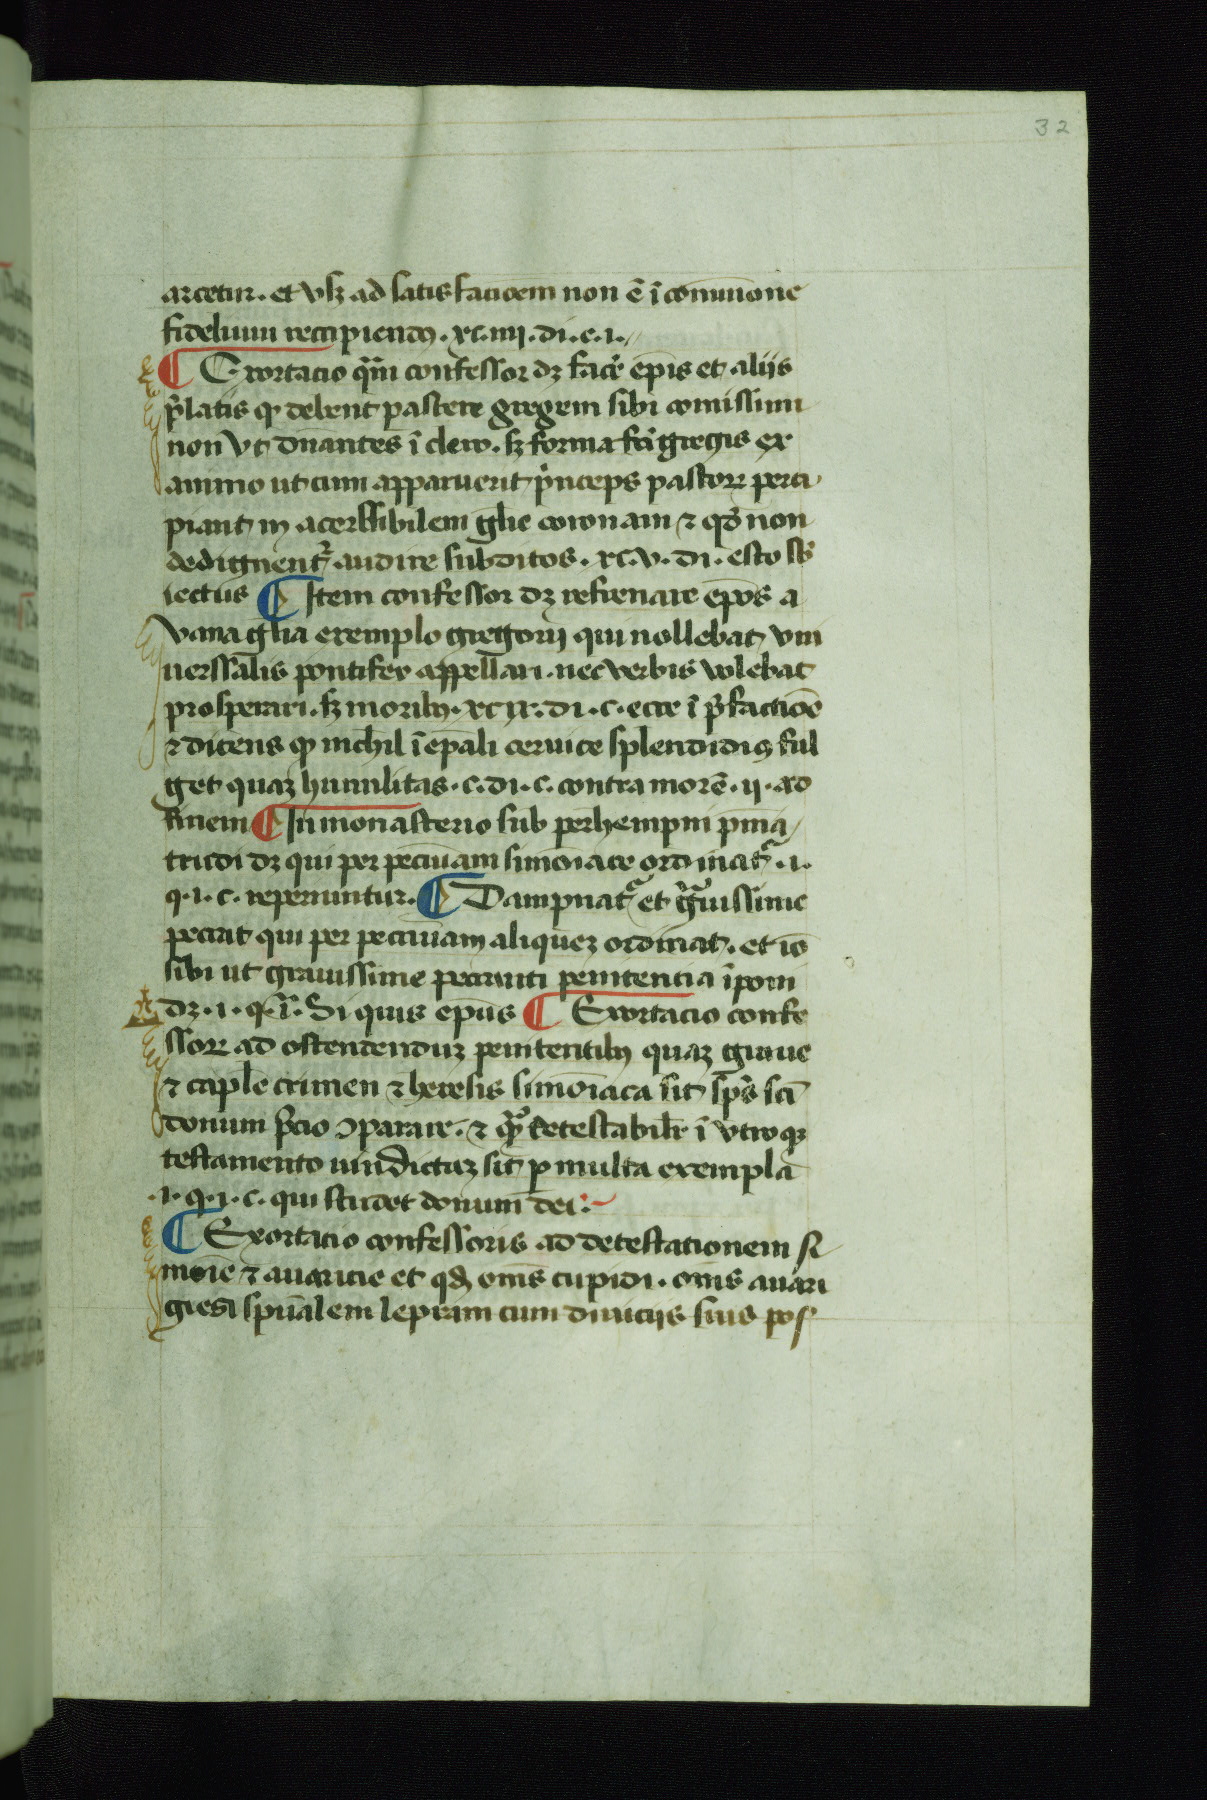 32
arcetur. et vsqꝫ ad satisfactiōem non ē ī cōmunione
fidelium recipiendꝰ. xc.iiij. di. c. i.
¶ Exortacio quā confessor dꝫ facē ep̄is et aliis
p̄latis qꝫ debent pascere gregem sibi comissum
non vt dn̄antes ī clero. sꝫ forma fc̄i gregis ex
animo ut cum apparuerit p̄nceps pastorꝫ perci
piant in acessibilem glīe coronam ⁊ qd̄ non
dedignent̄ audire subditos. xc.v. di. esto sb̄
iectus ¶ Item confessor dꝫ refrenare ep̄os a
vana glīa exemplo gregorij qui nollebat vni
uerssalis pontifex appellari. nec verbis volebat
prosperari. sꝫ moribꝰ. xcix. di. c. ecce ī p̄factiōe
⁊ dicens qꝫ nichil ī ep̄ali ceruice splendidiꝰ ful
get quaꝫ humilitas. c. di. c. contra morē. ij. ad
finem ¶ In monasterio sub perhempni pn̄ia
trudi dꝫ qui per peccūiam simōiace ordinat̄. i.
q. i. c. reperiuntur. ¶ Dampnat̄ et gͣuissime
peccat qui per peccūiam aliqueꝫ ordinat. et iō
sibi ut grauissime peccanti penitencia īponi
dꝫ. i. q. ī. Si quis ep̄us ¶ Exortacio confe
ssorꝫ ad ostendenduꝫ penitentibꝰ quaꝫ graue
⁊ capl̄e crimen ⁊ heresis simōiaca sit sps̄ sc̄i
donum p̄cio ↄparare. ⁊ qͣꝫ detestabilr̄ ī vtroqꝫ
testamento uindictaꝫ sit ꝑ multa exempla
.i. q. i. c. qui studet donum dei:~
¶ Exortacio confessoris ad detestationem si
monīe ⁊ auaricie et qd̄ om̄s cupidi. om̄s auari
giesi spūalem lepram cum diuiciis suis pos